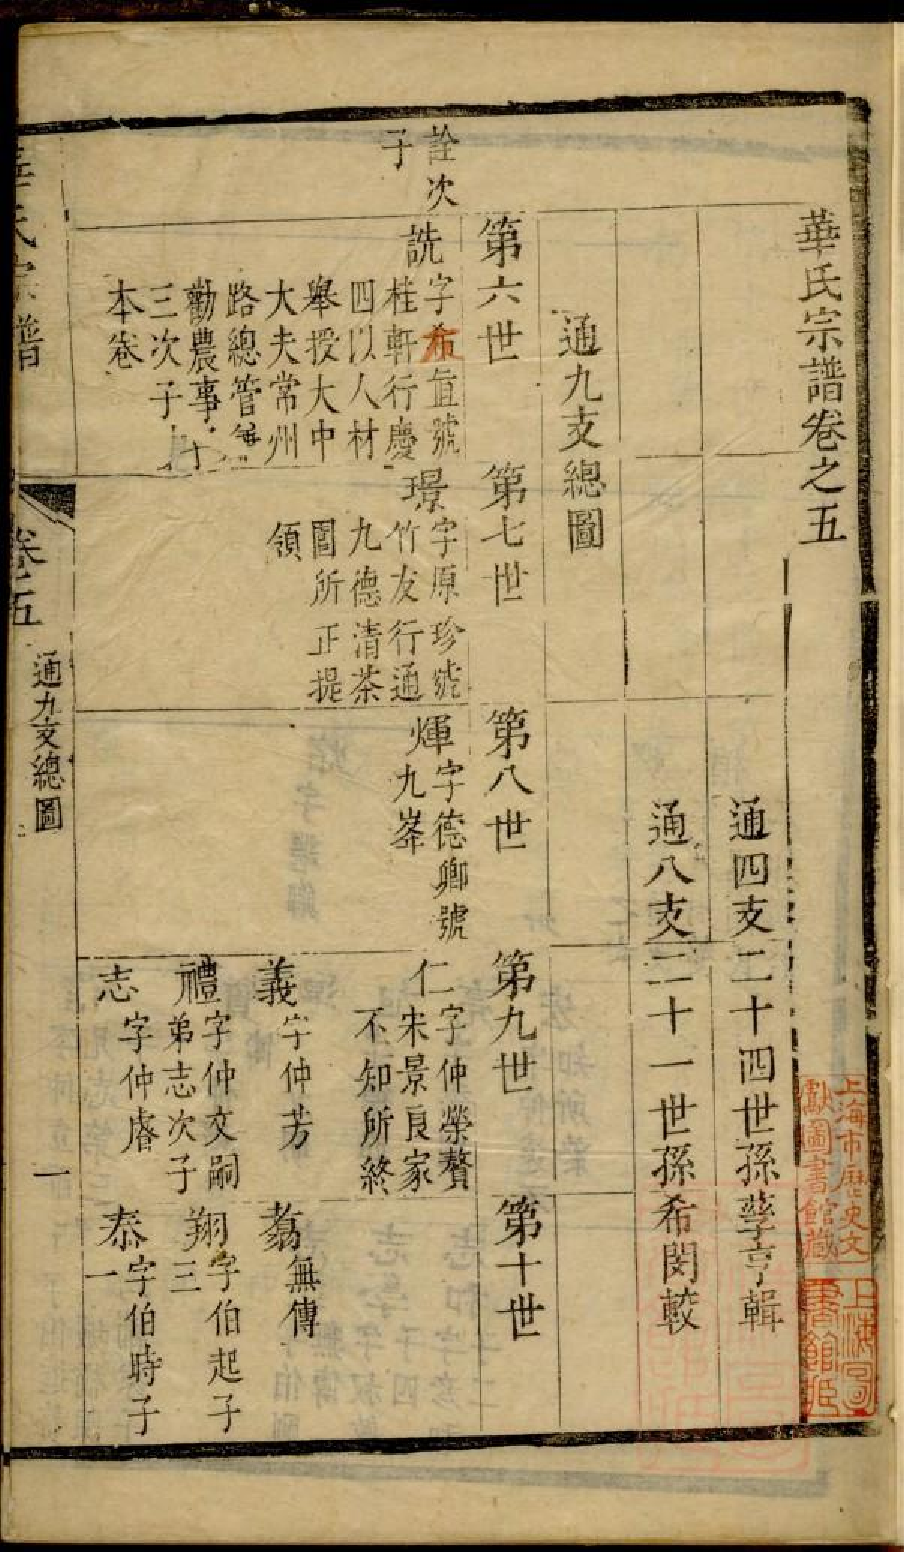 華氏宗譜卷之五
通四支二十四世孫孳亨輯
通八支二十一世孫希閔較
通九支總圖
第六世
第七世
第八世
第九世
第十世
詮次
子
詵
字希直號
桂軒行慶
四以人材
舉授大中
大夫常州
路總管兼
勸農事
三次子
本卷
璟
字原珍號
竹友行通
九德清茶
園所正提
領
煇
字德卿號
九峯
仁
字仲榮贅
宋景良家
不知所終
義
字仲芳
禮
字仲文嗣
弟志次子
志
字仲
翦
無傳
翔
字伯起子
三
泰
字伯時子
一
華氏宗譜
卷五
通九支總圖
一
上海市歷史文
獻圖書館藏